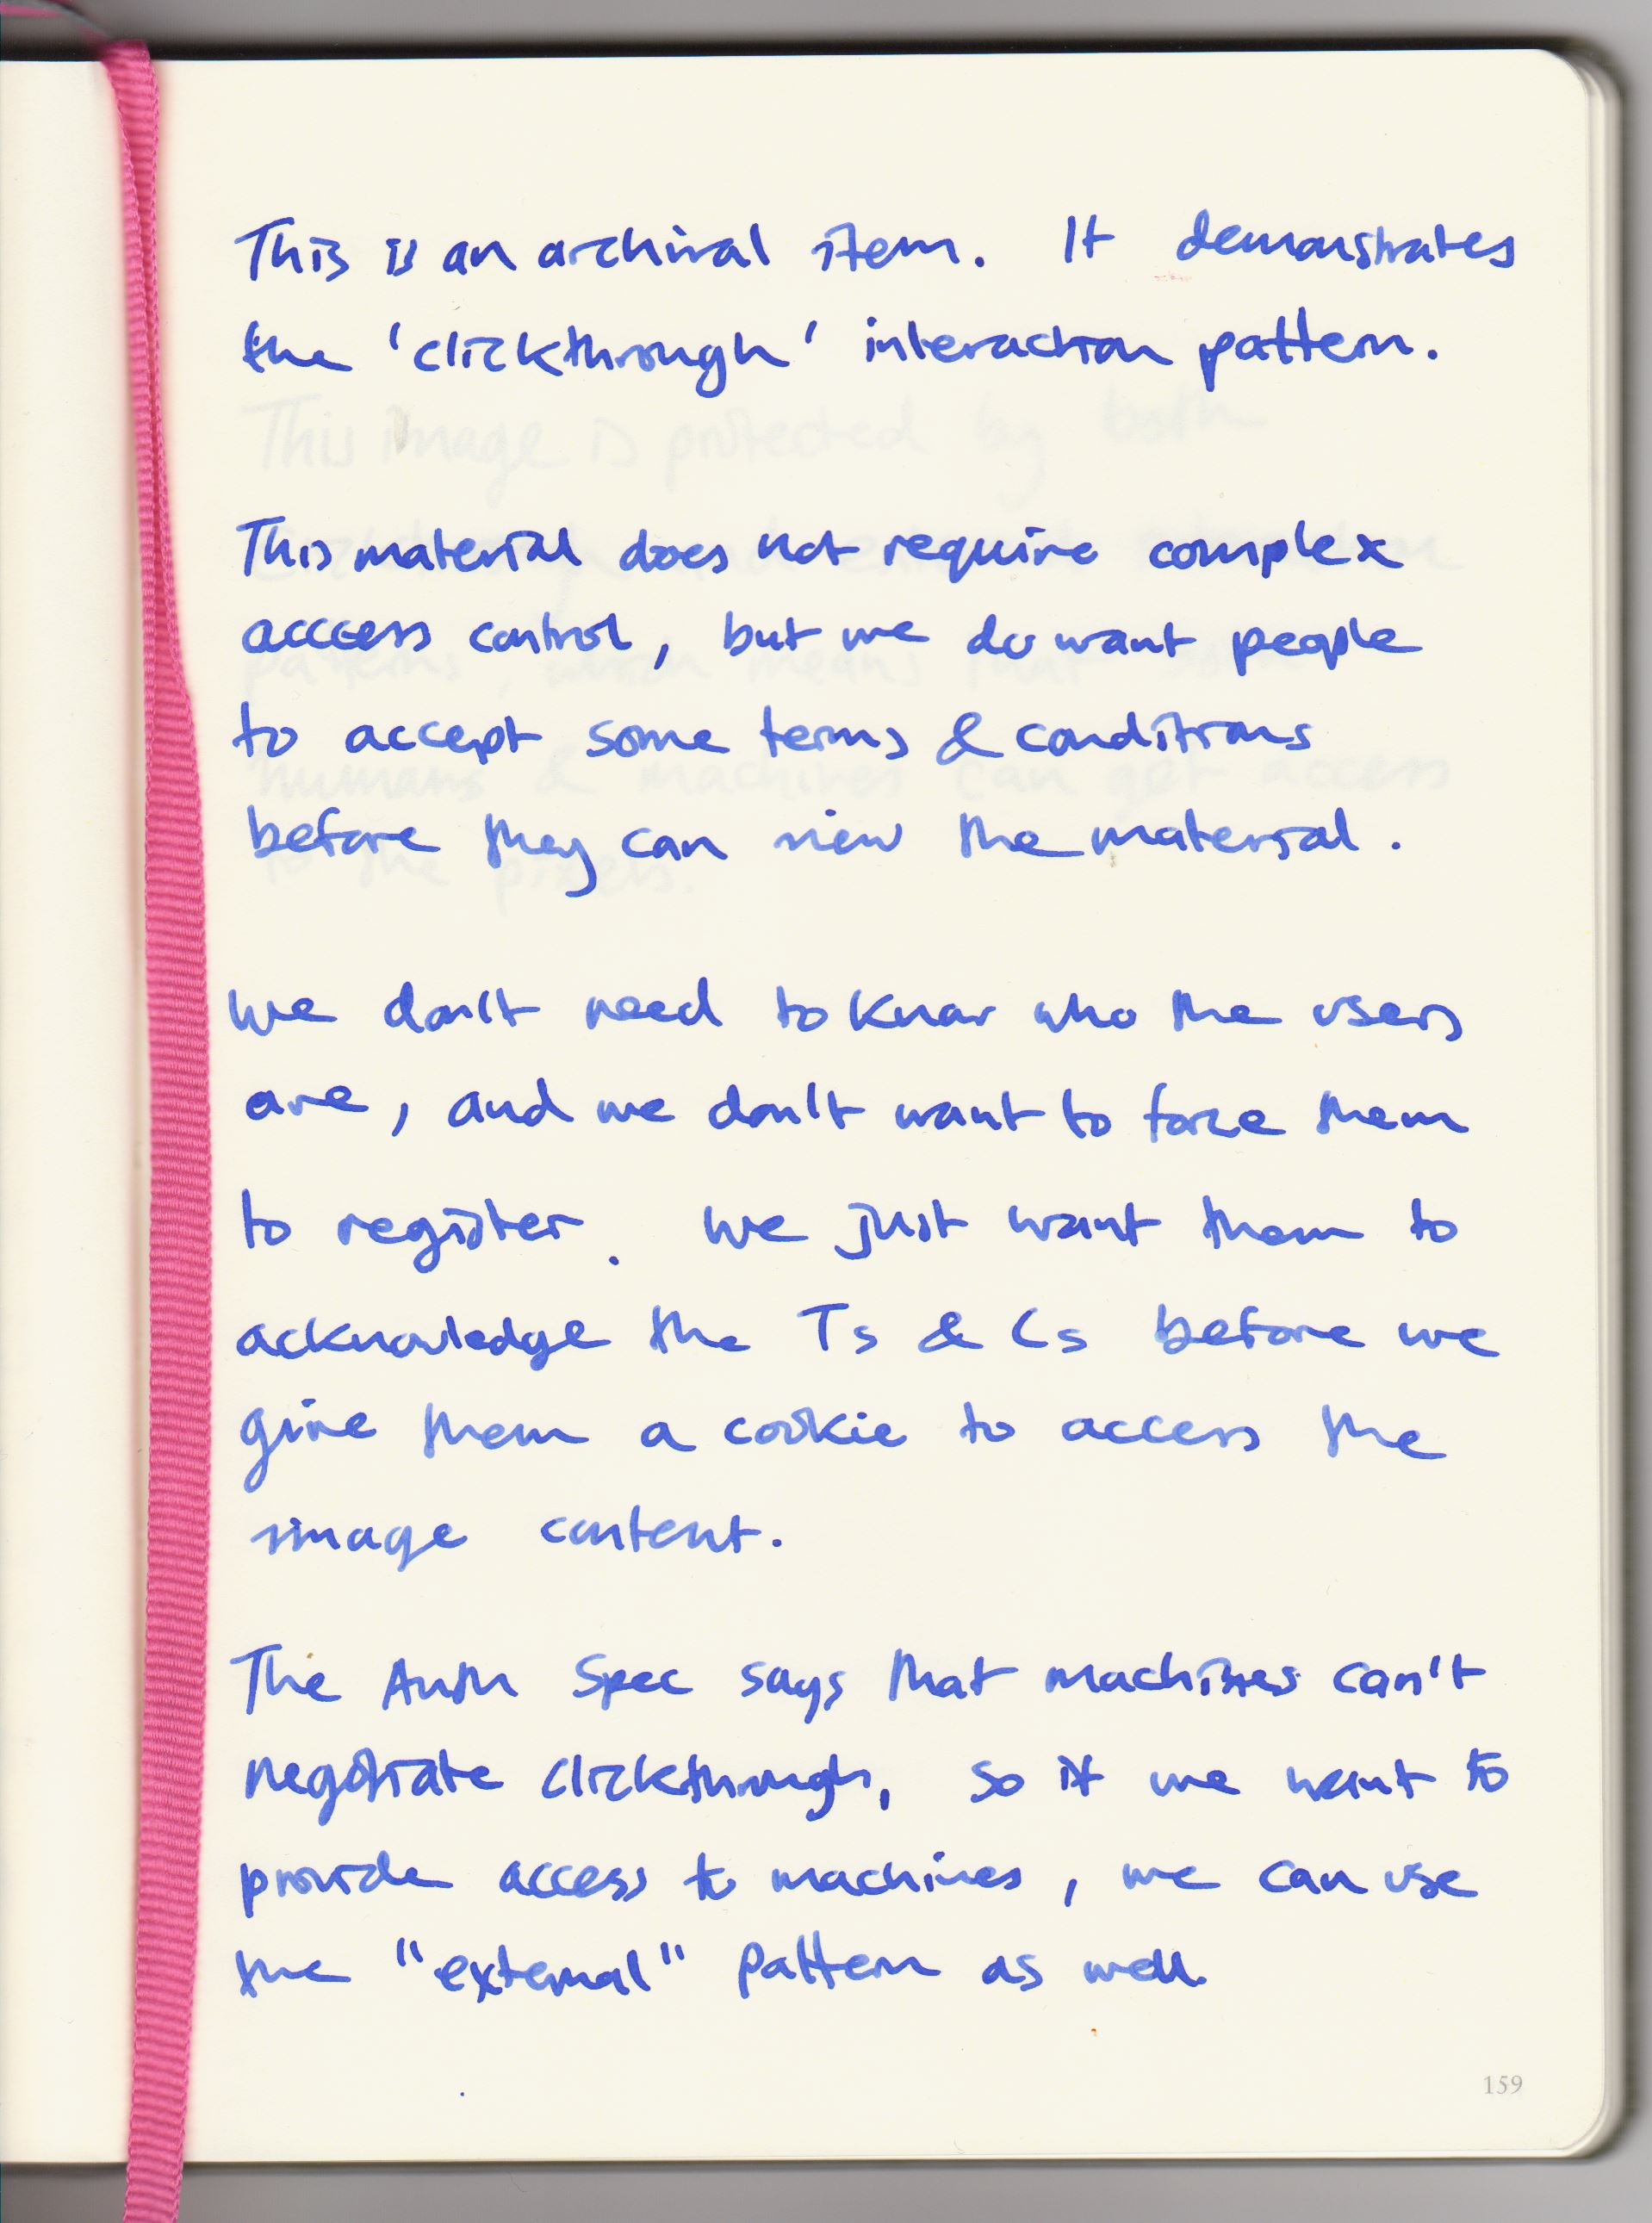 This is an archival item. It demonstrates
the 'clickthrough' interaction pattern.
This image is protected by both
This material does not require complex
access control, but we do want people
patterns, which means that
to accept some terms & conditions
humans & machines can get access
before they can view the material.
to the pixels.
We don't need to know who the users
are, and we don't want to force them
to register. We just want them to
acknowledge the Ts & Cs before we
give them a cookie to access the
image content.
The Auth Spec says that machines can't
negotiate clickthrough, so if we want to
provide access to machines, we can use
the "external" pattern as well.
159